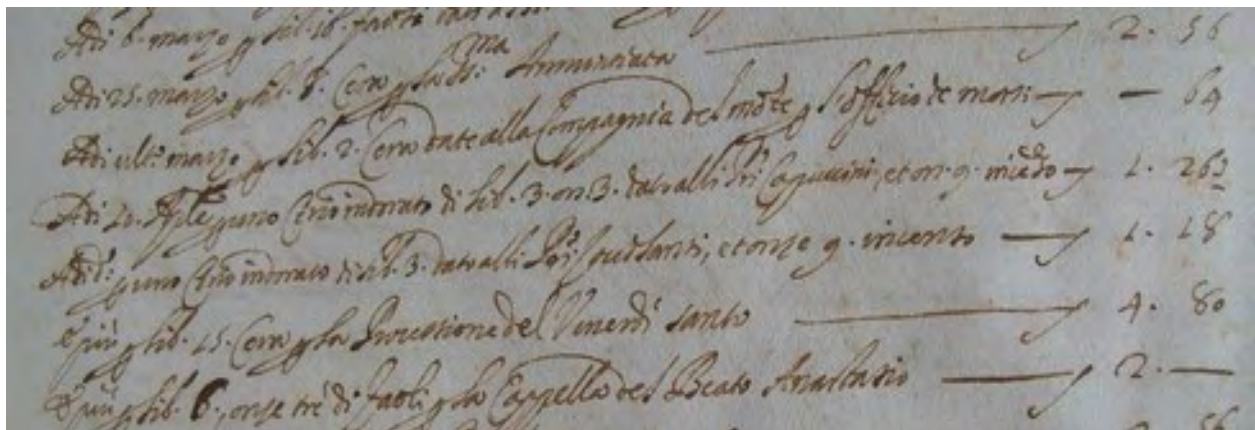 Adi 6. marzo p lib. 16. 2. 56
Adi 25. marzo p lib. 8. Cera p la SS.ma Annunciata
Adi ult.o marzo p lib. 2. Cera date alla Compagnia del monte p l'offitio de morti — 64
Adi 10. Aple p uno Cerio indorato di lib. 3. on. 3. dato alli Pri Capuccini, et on. 9. 1. 263
Adi d.o p uno Cerio indorato di lib. 3. dato alli Pri Zoccolanti, et onze 9. incento 1. 18
E più p lib. 15. Cera p la Processione del Venerdì santo 4. 80
E più p lib. 6. onze tre di facole p la Cappella del Beato Anastasio 2. —
56